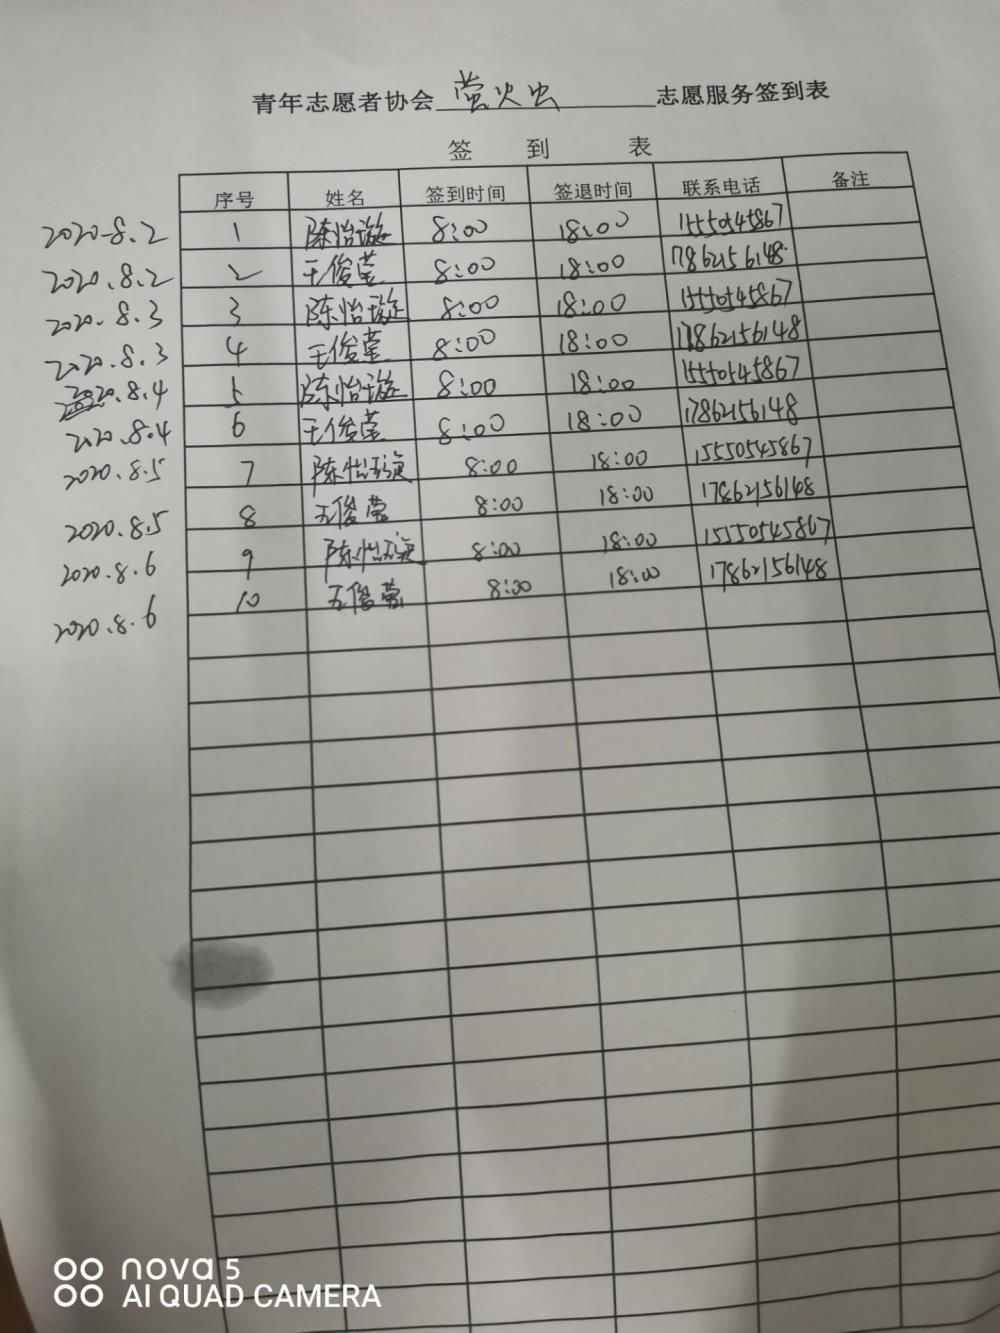 青年志愿者协会 萤火虫 志愿服务签到表
签 到 表
序号 姓名 签到时间 签退时间 联系电话 备注
2020.8.2 1 陈怡璇 8:00 18:00 15550545867
2020.8.2 2 王俊莹 8:00 18:00 17862156148
2020.8.3 3 陈怡璇 8:00 18:00 15550545867
2020.8.3 4 王俊莹 8:00 18:00 17862156148
2020.8.4 5 陈怡璇 8:00 18:00 15550545867
2020.8.4 6 王俊莹 8:00 18:00 17862156148
2020.8.5 7 陈怡璇 8:00 18:00 15550545867
2020.8.5 8 王俊莹 8:00 18:00 17862156148
2020.8.6 9 陈怡璇 8:00 18:00 15550545867
2020.8.6 10 王俊莹 8:00 18:00 17862156148
nova 5
AI QUAD CAMERA